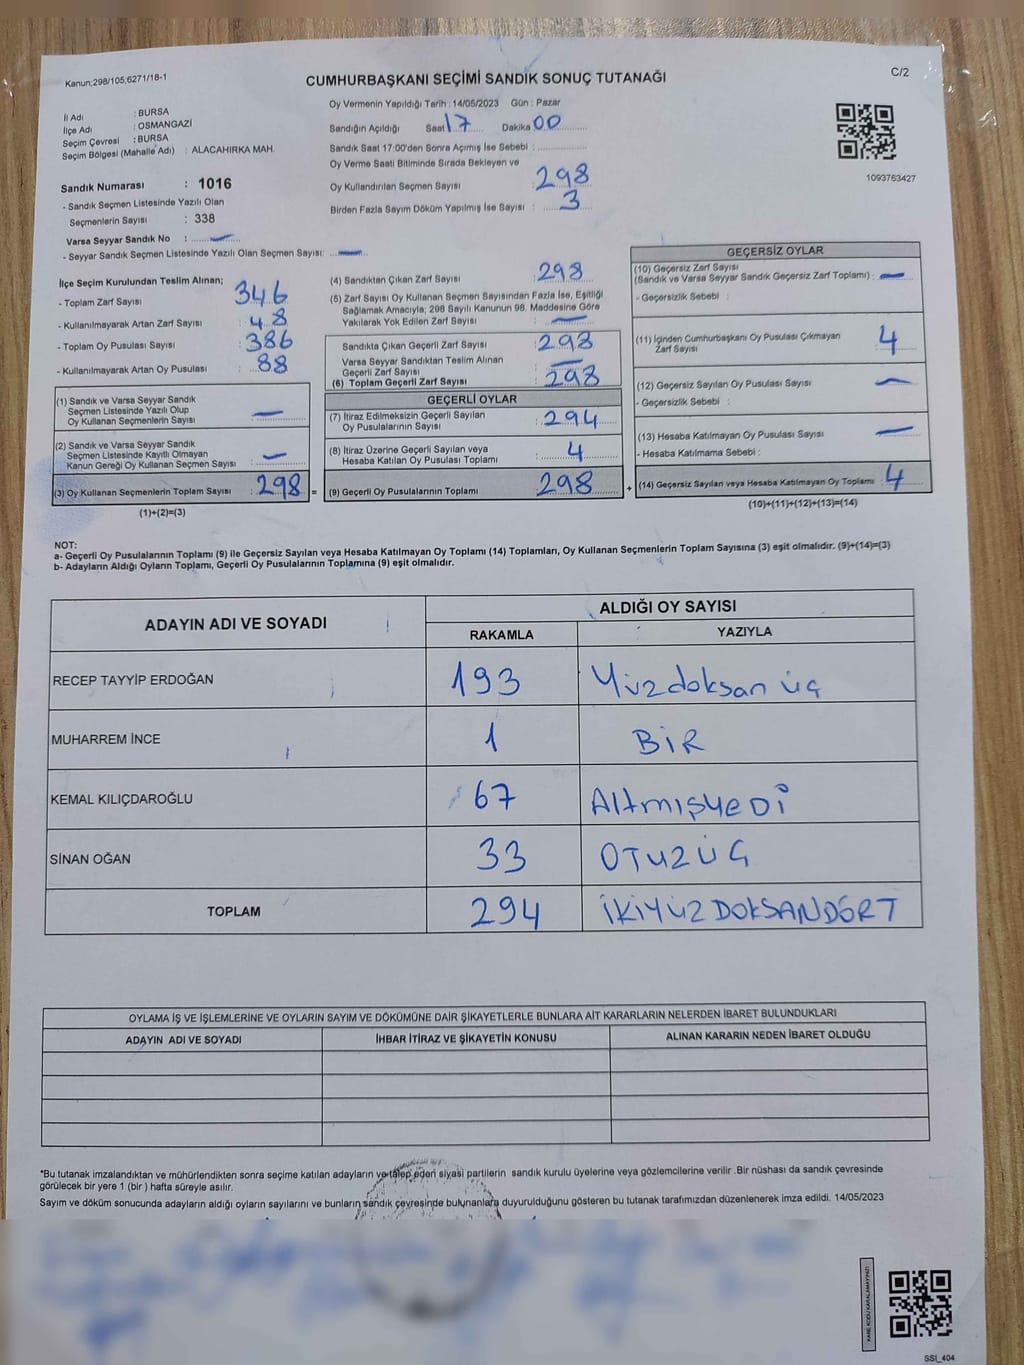 Kanun;298/105,6271/18-1
CUMHURBAŞKANI SEÇİMİ SANDIK SONUÇ TUTANAĞI
C/2
İl Adı : BURSA
İlçe Adı : OSMANGAZİ
Seçim Çevresi : BURSA
Seçim Bölgesi (Mahalle Adı) : ALACAHIRKA MAH.
Sandık Numarası : 1016
- Sandık Seçmen Listesinde Yazılı Olan
Seçmenlerin Sayısı : 338
Varsa Seyyar Sandık No :
- Seyyar Sandık Seçmen Listesinde Yazılı Olan Seçmen Sayısı:
Oy Vermenin Yapıldığı Tarih : 14/05/2023 Gün : Pazar
Sandığın Açıldığı Saat 17 Dakika 00
Sandık Saat 17:00'den Sonra Açımış İse Sebebi :
Oy Verme Saati Bitiminde Sırada Bekleyen ve
Oy Kullandırılan Seçmen Sayısı : 298
Birden Fazla Sayım Döküm Yapılmış İse Sayısı : 3
1093763427
İlçe Seçim Kurulundan Teslim Alınan;
- Toplam Zarf Sayısı : 346
- Kullanılmayarak Artan Zarf Sayısı : 48
- Toplam Oy Pusulası Sayısı : 386
- Kullanılmayarak Artan Oy Pusulası : 88
(1) Sandık ve Varsa Seyyar Sandık
Seçmen Listesinde Yazılı Olup
Oy Kullanan Seçmenlerin Sayısı : —
(2) Sandık ve Varsa Seyyar Sandık
Seçmen Listesinde Kayıtlı Olmayan
Kanun Gereği Oy Kullanan Seçmen Sayısı : —
(3) Oy Kullanan Seçmenlerin Toplam Sayısı : 298 =
(1)+(2)=(3)
(4) Sandıktan Çıkan Zarf Sayısı : 298
(5) Zarf Sayısı Oy Kullanan Seçmen Sayısından Fazla İse, Eşitliği
Sağlamak Amacıyla; 298 Sayılı Kanunun 98. Maddesine Göre
Yakılarak Yok Edilen Zarf Sayısı : —
Sandıkta Çıkan Geçerli Zarf Sayısı : 298
Varsa Seyyar Sandıktan Teslim Alınan
Geçerli Zarf Sayısı : —
(6) Toplam Geçerli Zarf Sayısı : 298
GEÇERLİ OYLAR
(7) İtiraz Edilmeksizin Geçerli Sayılan
Oy Pusulalarının Sayısı : 294
(8) İtiraz Üzerine Geçerli Sayılan veya
Hesaba Katılan Oy Pusulası Toplamı : 4
(9) Geçerli Oy Pusulalarının Toplamı : 298 +
GEÇERSİZ OYLAR
(10) Geçersiz Zarf Sayısı
(Sandık ve Varsa Seyyar Sandık Geçersiz Zarf Toplamı) : —
- Geçersizlik Sebebi :
(11) İçinden Cumhurbaşkanı Oy Pusulası Çıkmayan
Zarf Sayısı : 4
(12) Geçersiz Sayılan Oy Pusulası Sayısı : —
- Geçersizlik Sebebi :
(13) Hesaba Katılmayan Oy Pusulası Sayısı : —
- Hesaba Katılmama Sebebi :
(14) Geçersiz Sayılan veya Hesaba Katılmayan Oy Toplamı : 4
(10)+(11)+(12)+(13)=(14)
NOT:
a- Geçerli Oy Pusulalarının Toplamı (9) ile Geçersiz Sayılan veya Hesaba Katılmayan Oy Toplamı (14) Toplamları, Oy Kullanan Seçmenlerin Toplam Sayısına (3) eşit olmalıdır. (9)+(14)=(3)
b- Adayların Aldığı Oyların Toplamı, Geçerli Oy Pusulalarının Toplamına (9) eşit olmalıdır.
ADAYIN ADI VE SOYADI
ALDIĞI OY SAYISI
RAKAMLA YAZIYLA
RECEP TAYYİP ERDOĞAN 193 Yüzdoksan üç
MUHARREM İNCE 1 BİR
KEMAL KILIÇDAROĞLU 67 Altmışyedi
SİNAN OĞAN 33 OTUZÜÇ
TOPLAM 294 İKİYÜZDOKSANDÖRT
OYLAMA İŞ VE İŞLEMLERİNE VE OYLARIN SAYIM VE DÖKÜMÜNE DAİR ŞİKAYETLERLE BUNLARA AİT KARARLARIN NELERDEN İBARET BULUNDUKLARI
ADAYIN ADI VE SOYADI İHBAR İTİRAZ VE ŞİKAYETİN KONUSU ALINAN KARARIN NEDEN İBARET OLDUĞU
*Bu tutanak imzalandıktan ve mühürlendikten sonra seçime katılan adayların ve talep eden siyasi partilerin sandık kurulu üyelerine veya gözlemcilerine verilir .Bir nüshası da sandık çevresinde
görülecek bir yere 1 (bir ) hafta süreyle asılır.
Sayım ve döküm sonucunda adayların aldığı oyların sayılarını ve bunların sandık çevresinde bulunanlara duyurulduğunu gösteren bu tutanak tarafımızdan düzenlenerek imza edildi. 14/05/2023
KARE KODU KARALAMAYINIZ!
SSİ_404